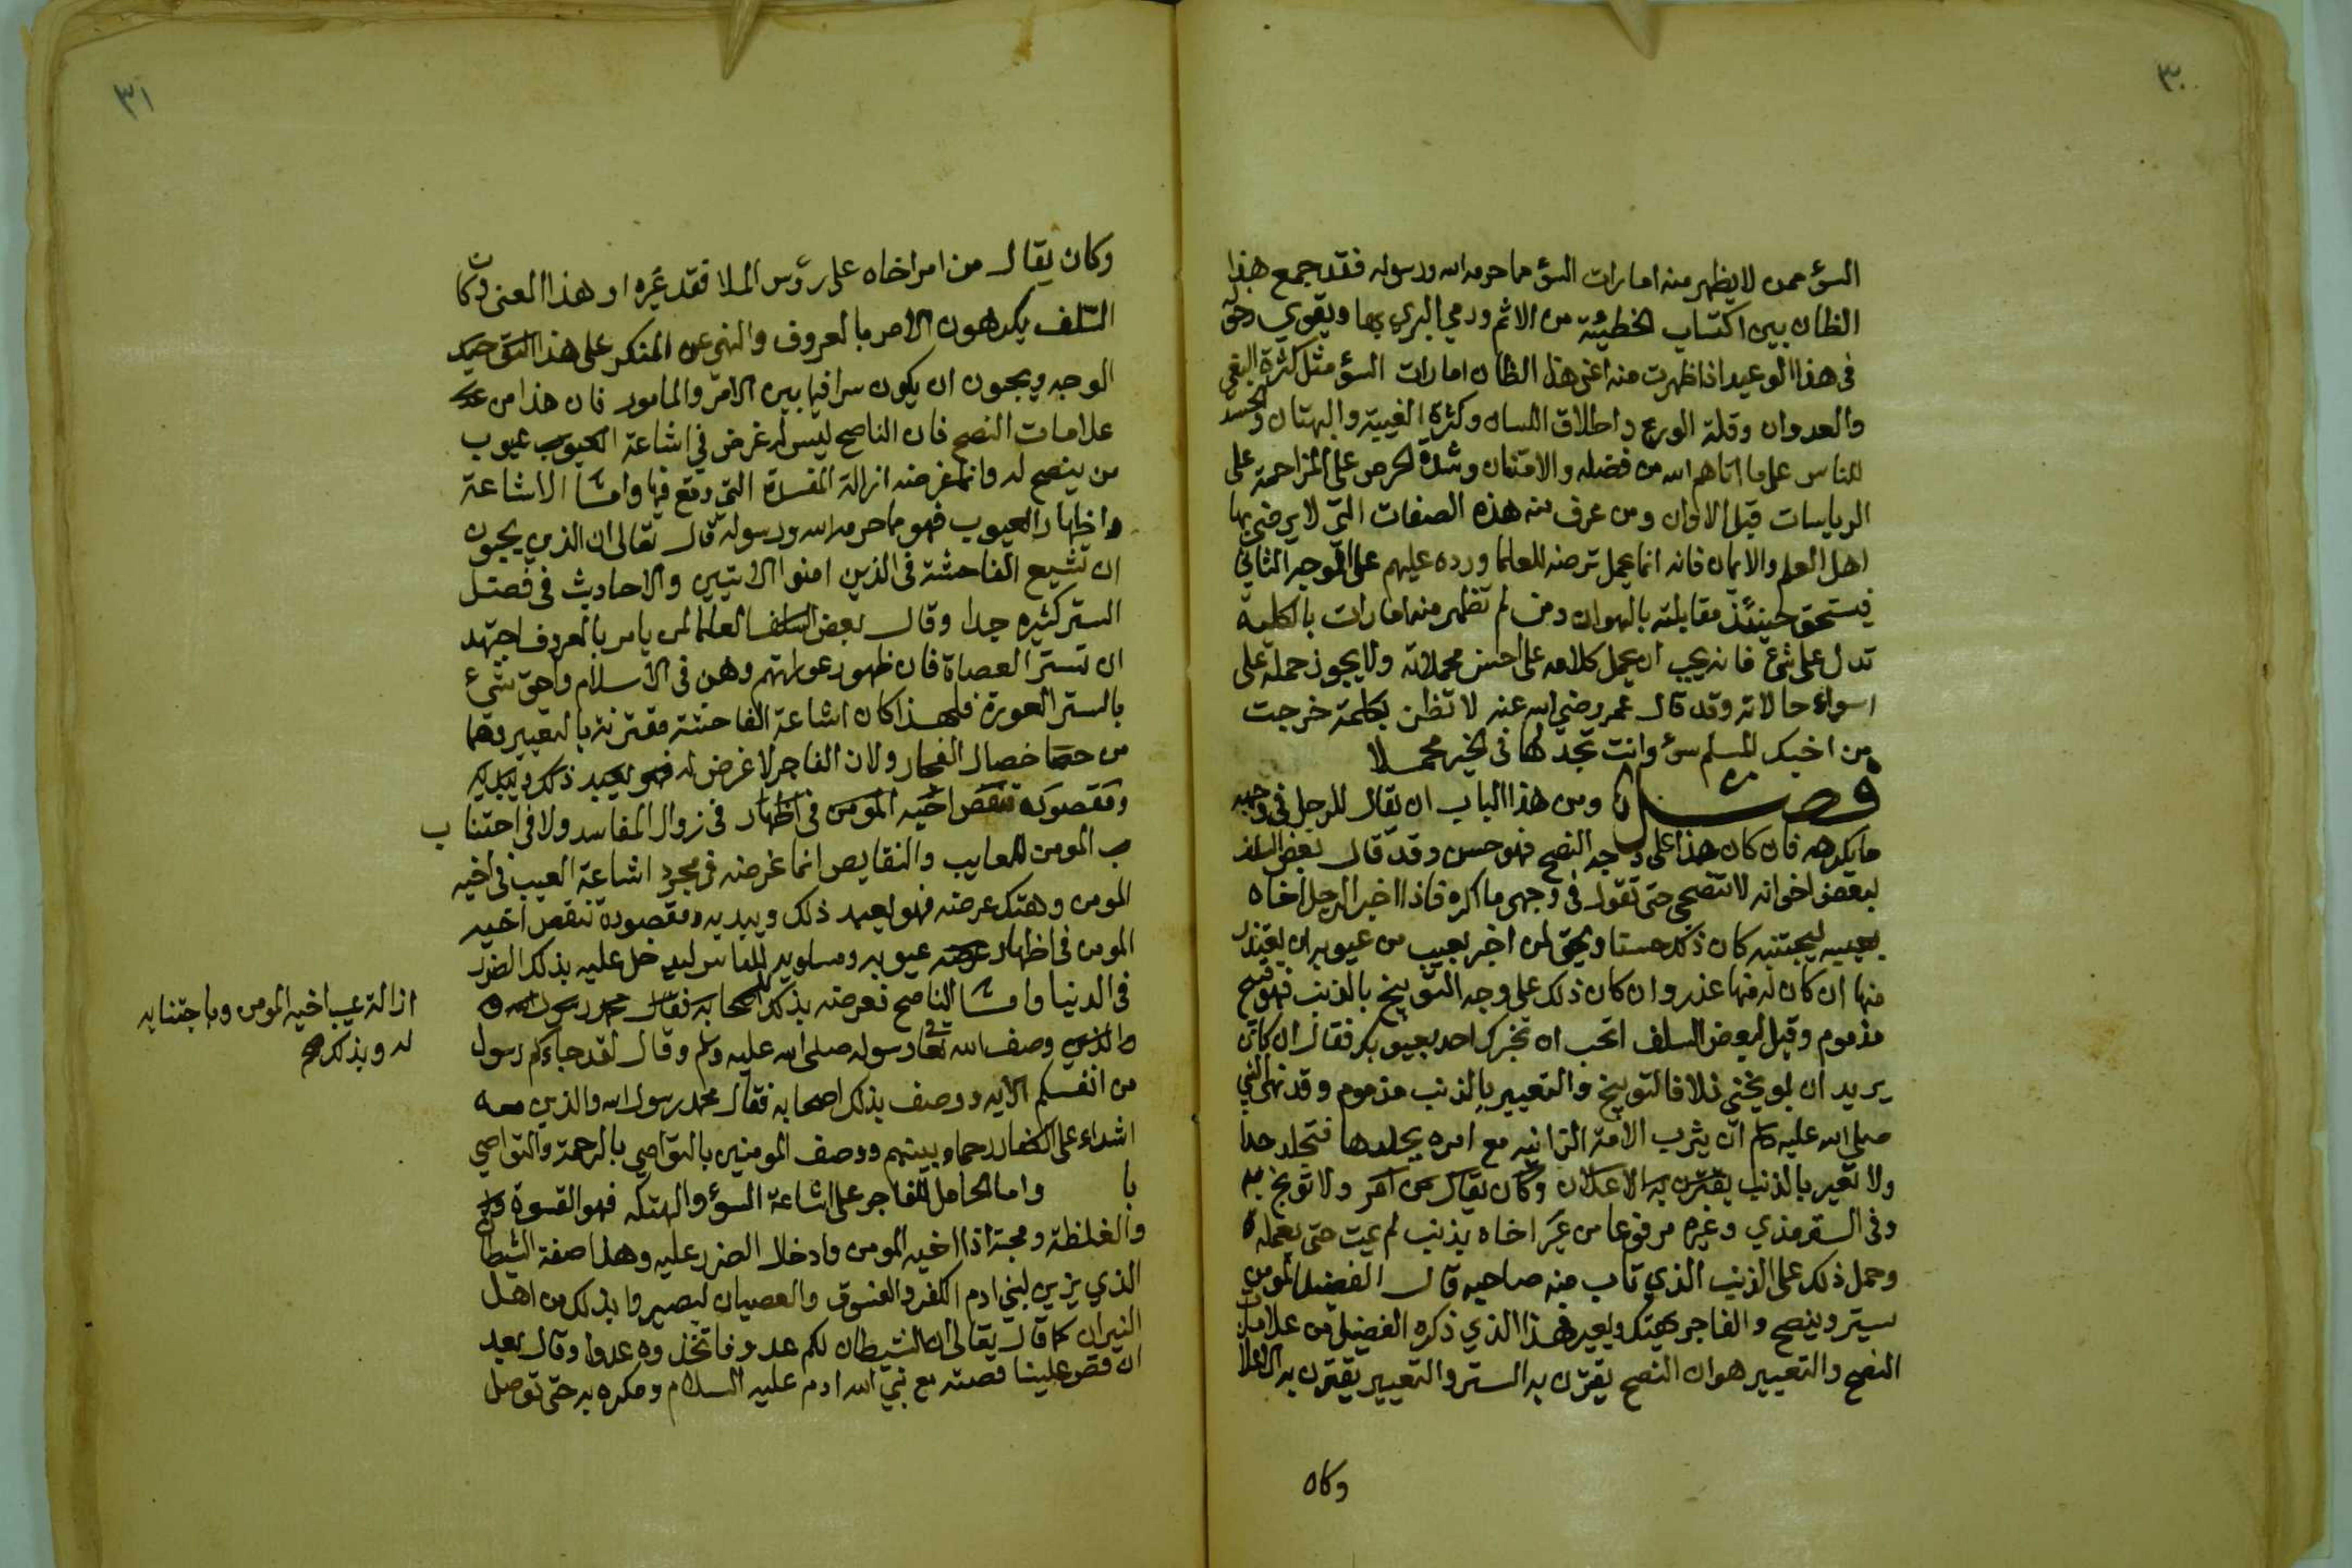 ٣٠
السؤ ممن لا يظهر منه امارات السؤ مما حرمه الله ورسوله فقد جمع هذا
الظان بين اكتساب الخطيئة من الاثم ورمي البري بها ويقوي دخوله
في هذا الوعيد اذا ظهرت منه اعني هذا الظان امارات السؤ مثل كثرة البغي
والعدوان وقلة الورع واطلاق اللسان وكثرة الغيبة والبهتان والحسد
للناس على ما اتاهم الله من فضله والامتنان وشدة الحرص على المزاحمة على
الرياسات قبل الاوان ومن عرف منه هذه الصفات التي لا يرضى بها
اهل العلم والايمان فانه انما يحمل تعرضه للعلما ورده عليهم على الوجه الثاني
فيستحق حينئذ مقابلته بالهوان ومن لم تظهر منه امارات بالكلية
تدل على شئ فانه يجب ان يحمل كلامه على احسن محملاته ولا يجوز حمله على
اسواء حالاته وقد قال عمر رضي الله عنه لا تظن بكلمة خرجت
من اخيك المسلم سوء وانت تجد لها في الخير محملا
فصل ومن هذا الباب ان يقال للرجل في وجهه
ما يكرهه فان كان هذا على وجه النصح فهو حسن وقد قال بعض السلف
لبعض اخوانه لا تنصحني حتى تقول في وجهي ما اكره فاذا اخبر الرجل اخاه
بعيبه ليجتنبه كان ذلك حسنا ويحق لمن اخبر بعيب من عيوبه ان يعتذر
منها ان كان له منها عذر وان كان ذلك على وجه التوبيخ بالذنب فهو قبيح
مذموم وقيل لبعض السلف اتحب ان يخبرك احد بعيوبك فقال ان كان
يريد ان يوبخني فلا فالتوبيخ والتعيير بالذنب مذموم وقد نهى النبي
صلى الله عليه وسلم ان يثرب الامة الزانية مع امره بجلدها فتجلد حدا
ولا تعير بالذنب يقترن به الاعلان وكان يقال من امر ولا توبخ به
وفي الترمذي وغيره مرفوعا من عير اخاه بذنب لم يمت حتى يعمله
وحمل ذلك على الذنب الذي تاب منه صاحبه قال الفضيل المومن
يستر وينصح والفاجر يهتك ويعير فهذا الذي ذكره الفضيل من علامات
النصح والتعيير هو ان النصح يقترن به الستر والتعيير يقترن به الاعلان
وكان
٣١
وكان يقال من امر اخاه على رؤس الملا فقد عيره او هذا المعنى وكان
السلف يكرهون الامر بالمعروف والنهي عن المنكر على هذا
الوجه ويحبون ان يكون سرا فيما بين الامر والمامور فان هذا من
علامات النصح فان الناصح ليس له غرض في اشاعة العيوب عيوب
من ينصح له وانما غرضه ازالة المفسدة التي وقع فيها وامـا الاشاعة
واظهار العيوب فهو مما حرمه الله ورسوله قال تعالى ان الذين يحبون
ان تشيع الفاحشة في الذين امنوا الايتين والاحاديث في فضل
الستر كثيره جدا وقال بعض السلف العلما لمن يامر بالمعروف اجتهد
ان تستر العصاة فان ظهور عوراتهم وهن في الاسلام واحق شئ
بالستر العورة فلهذا كان اشاعة الفاحشة مقترنة بالتعيير وهما
من خصال الفجار ولان الفاجر لا غرض له فهو يعيد ذلك ويبديه
ومقصوده تنقص اخيه المومن في اظهار في زوال المفاسد ولا في اجتناب
ب المومن للمعايب والنقايص انما غرضه في مجرد اشاعة العيب في اخيه
المومن وهتك عرضه فهو يعيد ذلك ويبديه ومقصوده تنقص اخيه
المومن في اظهار عيوبه ومساويه للناس ليدخل عليه بذلك الضرر
في الدنيا وامـا الناصح فغرضه بذلك اصحابه فقال محمد رسول الله
والذي وصف الله تعالى رسوله صلى الله عليه وسلم وقال لقد جاءكم رسول
من انفسكم الايه ووصف بذلك اصحابه فقال محمد رسول الله والذين معه
اشداء على الكفار رحماء بينهم ووصف المومنين بالتواصي بالرحمة والتواصي
با واما الحامل للفاجر على اشاعة السؤ والهتكه فهو القسوة
والغلظة ومحبة اذا اخيه المومن وادخال الضرر عليه وهذا صفة الشيطان
الذي يزين لبني ادم الكفر والفسوق والعصيان ليصيروا بذلك من اهل
النيران كما قال تعالى ان الشيطان لكم عدو فاتخذوه عدوا وقال بعد
ان قص علينا قصته مع نبي الله ادم عليه السلام ومكره به حتى توصل
ازالة عيب اخيه المومن وباجتنابه
له وبذلك صح